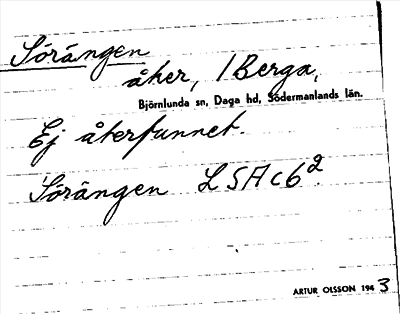 Sörängen
åker, 1 Berga,
Björnlunda sn, Daga hd, Södermanlands län.
Ej återfunnet.
Sörängen LSA C6²
ARTUR OLSSON 1943